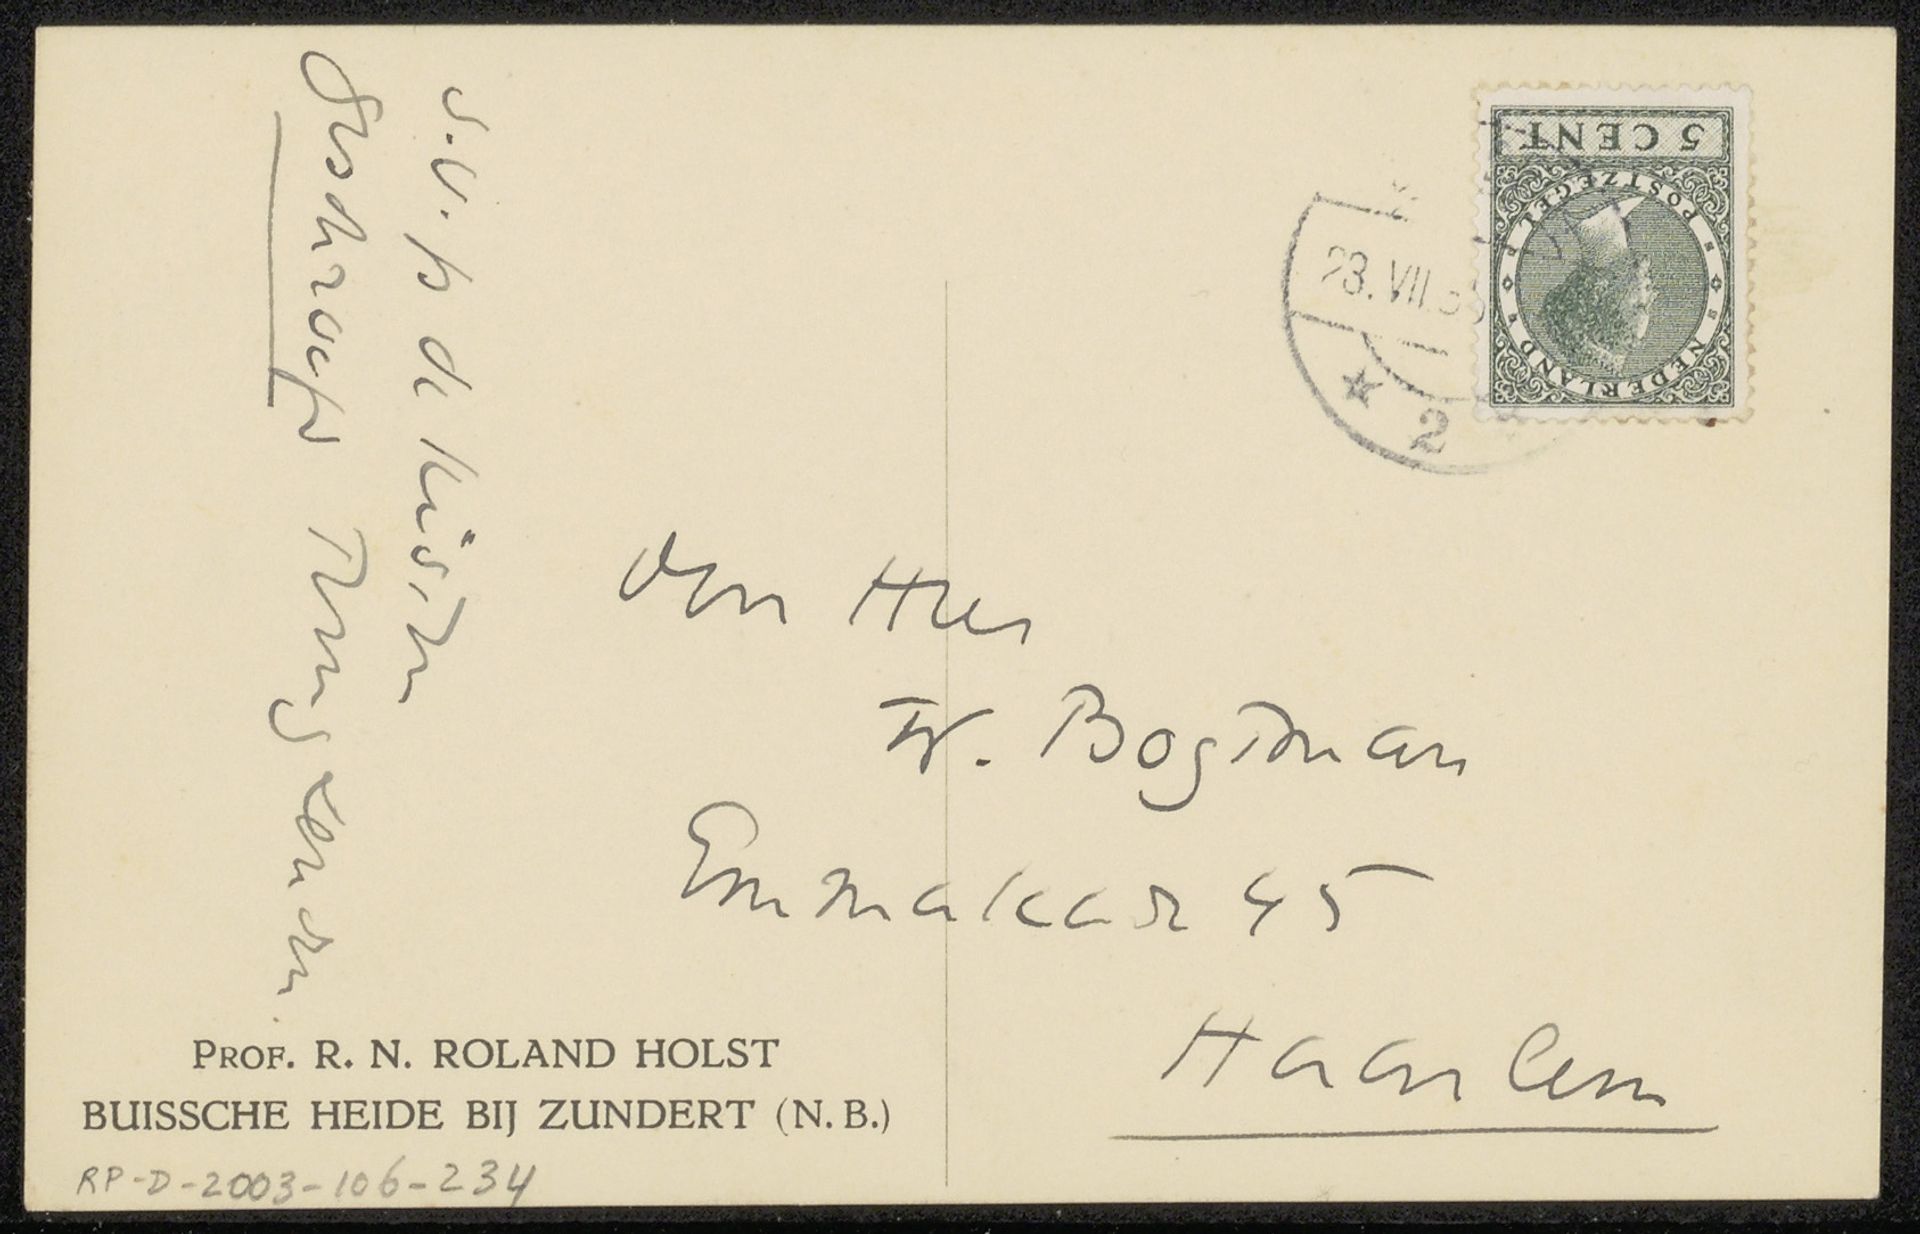 S.V.p de Kuisten
Geschroefd Terug zenden.
5 CENT
POSTZEGEL
NEDERLAND
28.VII.
2
den Heer
W. Bogtman
Emmakade 45
Haarlem
PROF. R. N. ROLAND HOLST
BUISSCHE HEIDE BIJ ZUNDERT (N. B.)
RP-D-2003-106-234